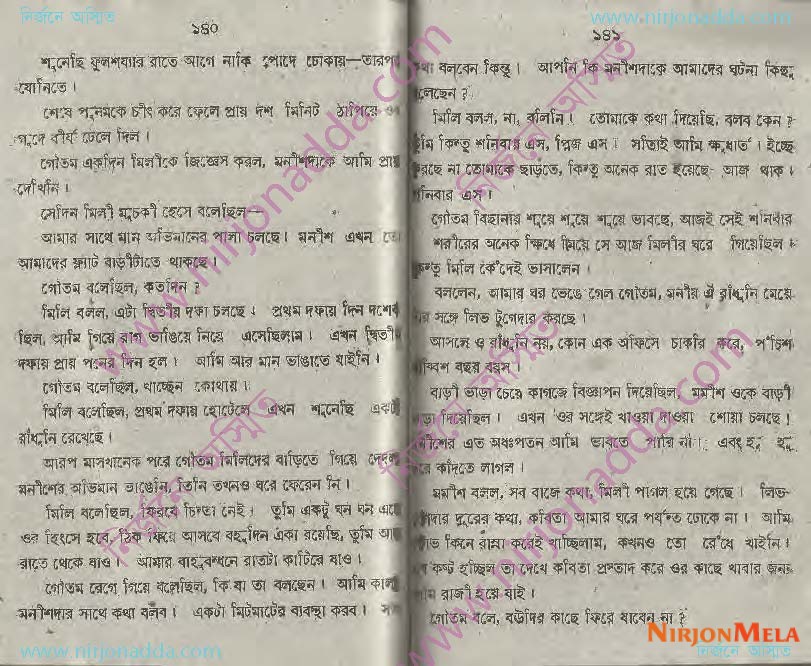 নির্জনে অস্মিত
www.nirjonadda.com
১৪০
শুনেছি ফুলশয্যার রাতে আগে নাকি পোঁদে ঢোকায়—তারপর
যোনিতে।
শেষে পুনমকে চীৎ করে ফেলে প্রায় দশ মিনিট ঠাপিয়ে
গুদে বীর্য ঢেলে দিল।
গৌতম একদিন মিলীকে জিজ্ঞেস করল, মনীশদাকে আমি প্রায়
দেখিনি।
সেদিন মিলী মুচকী হেসে বলেছিল—
আমার সাথে মান অভিমানের পালা চলছে। মনীশ এখন তো
আমাদের ফ্লাট বাড়ীটাতে থাকছে।
গৌতম বলেছিল, কতদিন?
মিলি বলল, এটা দ্বিতীয় দফা চলছে। প্রথম দফায় দিন দশেক
ছিল, আমি গিয়ে রাগ ভাঙিয়ে নিয়ে এসেছিলাম। এখন দ্বিতীয়
দফায় প্রায় পনের দিন হল। আমি আর মান ভাঙাতে যাইনি।
গৌতম বলেছিল, খাচ্ছেন কোথায়।
মিলি বলেছিল, প্রথম দফায় হোটেলে এখন শুনেছি একটা
রাঁধুনি রেখেছে।
আরও মাসখানেক পরে গৌতম মিলিদের বাড়িতে গিয়ে দেখল
মনীশের অভিমান ভাঙেনি, তিনি তখনও ঘরে ফেরেন নি।
মিলি বলেছিল, ফিরবে চিন্তা নেই। তুমি একটু ঘন ঘন এসে
ওর হিংসে হবে, ঠিক ফিরে আসবে বহুদিন একা রয়েছি, তুমি আজ
রাতে থেকে যাও। আমার বাহুবন্ধনে রাতটা কাটিয়ে যাও।
গৌতম রেগে গিয়ে বলেছিল, কি যা তা বলছেন। আমি কালই
মনীশদার সাথে কথা বলব। একটা মিটমাটের ব্যবস্থা করব।
১৪১
কথা বলবেন কিন্তু। আপনি কি মনীশদাকে আমাদের ঘটনা কিছু
বলেছেন?
মিলি বলল, না, বলিনি। তোমাকে কথা দিয়েছি, বলব কেন?
তুমি কিন্তু শনিবার এস, প্লিজ এস। সত্যিই আমি ক্ষুধার্ত। ইচ্ছে
করছে না তোমাকে ছাড়তে, কিন্তু অনেক রাত হয়েছে আজ থাক।
শনিবার এস।
গৌতম বিছানায় শুয়ে শুয়ে শুয়ে ভাবছে, আজই সেই শনিবার
শরীরের অনেক ক্ষিধে নিয়ে সে আজ মিলীর ঘরে গিয়েছিল।
কিন্তু মিলি কেঁদেই ভাসালেন।
বললেন, আমার ঘর ভেঙে গেল গৌতম, মনীষ ঐ রাঁধুনি মেয়ে
সঙ্গে লিভ টুগেদার করছে।
আসলে ও রাঁধুনি নয়, কোন এক অফিসে চাকরি করে, পঁচিশ
ছাব্বিশ বছর বয়স।
বাড়ী ভাড়া চেয়ে কাগজে বিজ্ঞাপন দিয়েছিল, মনীশ ওকে বাড়ী
ভাড়া দিয়েছিল। এখন ওর সঙ্গেই খাওয়া দাওয়া শোয়া চলছে।
মনীশের এত অধঃপতন আমি ভাবতে পারি না। এবং হু হু
করে কাঁদতে লাগল।
মনীশ বলল, সব বাজে কথা, মিলী পাগল হয়ে গেছে। লিভ-
টুগেদার দূরের কথা, কবিতা আমার ঘরে পর্যন্ত ঢোকে না। আমি
কিনে রান্না করেই খাচ্ছিলাম, কখনও তো রেঁধে খাইনি।
কষ্ট হচ্ছিল তা দেখে কবিতা প্রস্তাব করে ওর কাছে খাবার জন্য
আমি রাজী হয়ে যাই।
গৌতম বলে, বউদির কাছে ফিরে যাবেন না?
NIRJONMELA
নির্জনে অস্মিত
www.nirjonadda.com